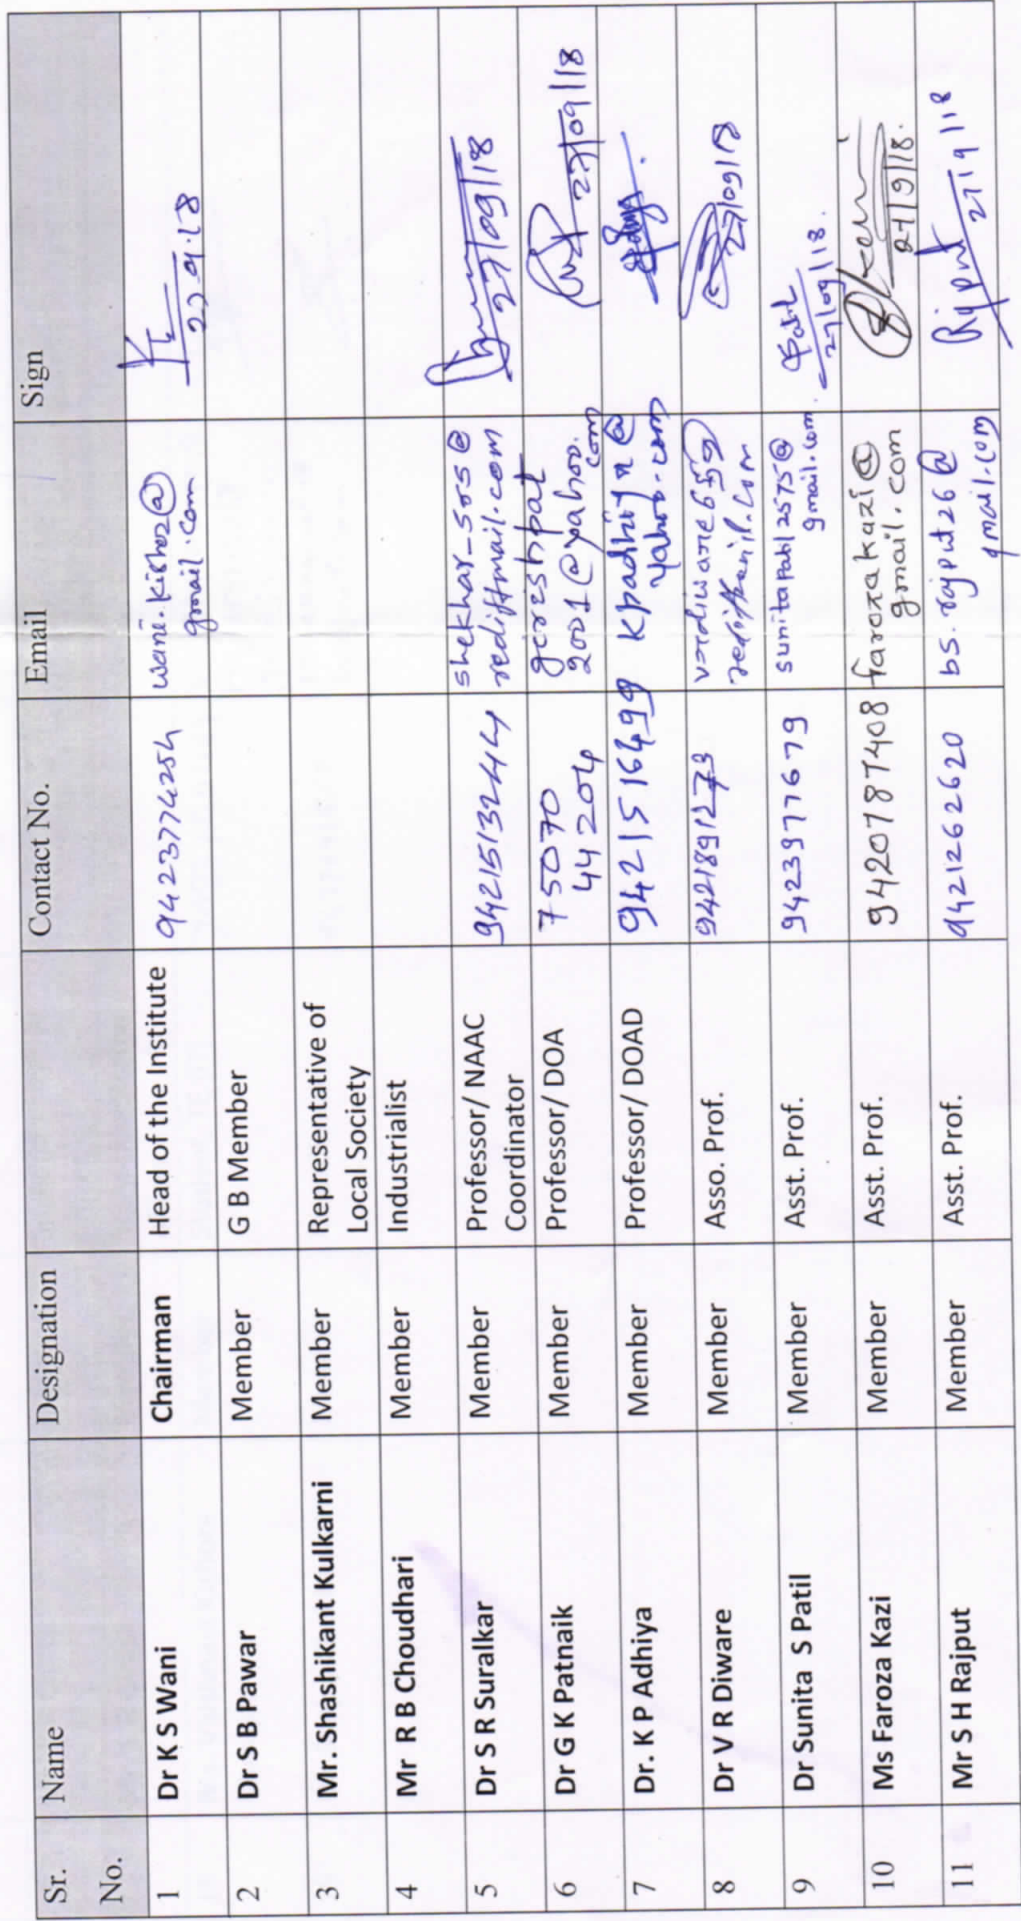 Sr. No. Name Designation Contact No. Email Sign
1 Dr K S Wani Chairman Head of the Institute 9423774254 wani.kishor2@
gmail.com
27.9.18
2 Dr S B Pawar Member G B Member
3 Mr. Shashikant Kulkarni Member Representative of
Local Society
4 Mr R B Choudhari Member Industrialist
5 Dr S R Suralkar Member Professor/ NAAC
Coordinator
9421513244 shekhar_srs@
rediffmail.com
27/09/18
6 Dr G K Patnaik Member Professor/ DOA 75070
44204
gcrishpat
2001@yahoo.
com
27/09/18
7 Dr. K P Adhiya Member Professor/ DOAD 9421516499 kpadhiya@
yahoo.com
8 Dr V R Diware Member Asso. Prof. 9421891273
rediffmail.com
27/09/18
9 Dr Sunita S Patil Member Asst. Prof. 9423977679 sunitaPatil2575@
gmail.com.
Patil
27/09/18.
10 Ms Faroza Kazi Member Asst. Prof. 9420787408 farozakazi@
gmail.com
27/9/18.
11 Mr S H Rajput Member Asst. Prof. 9421262620 bs.rajput26@
gmail.com
Rajput
27/9/18